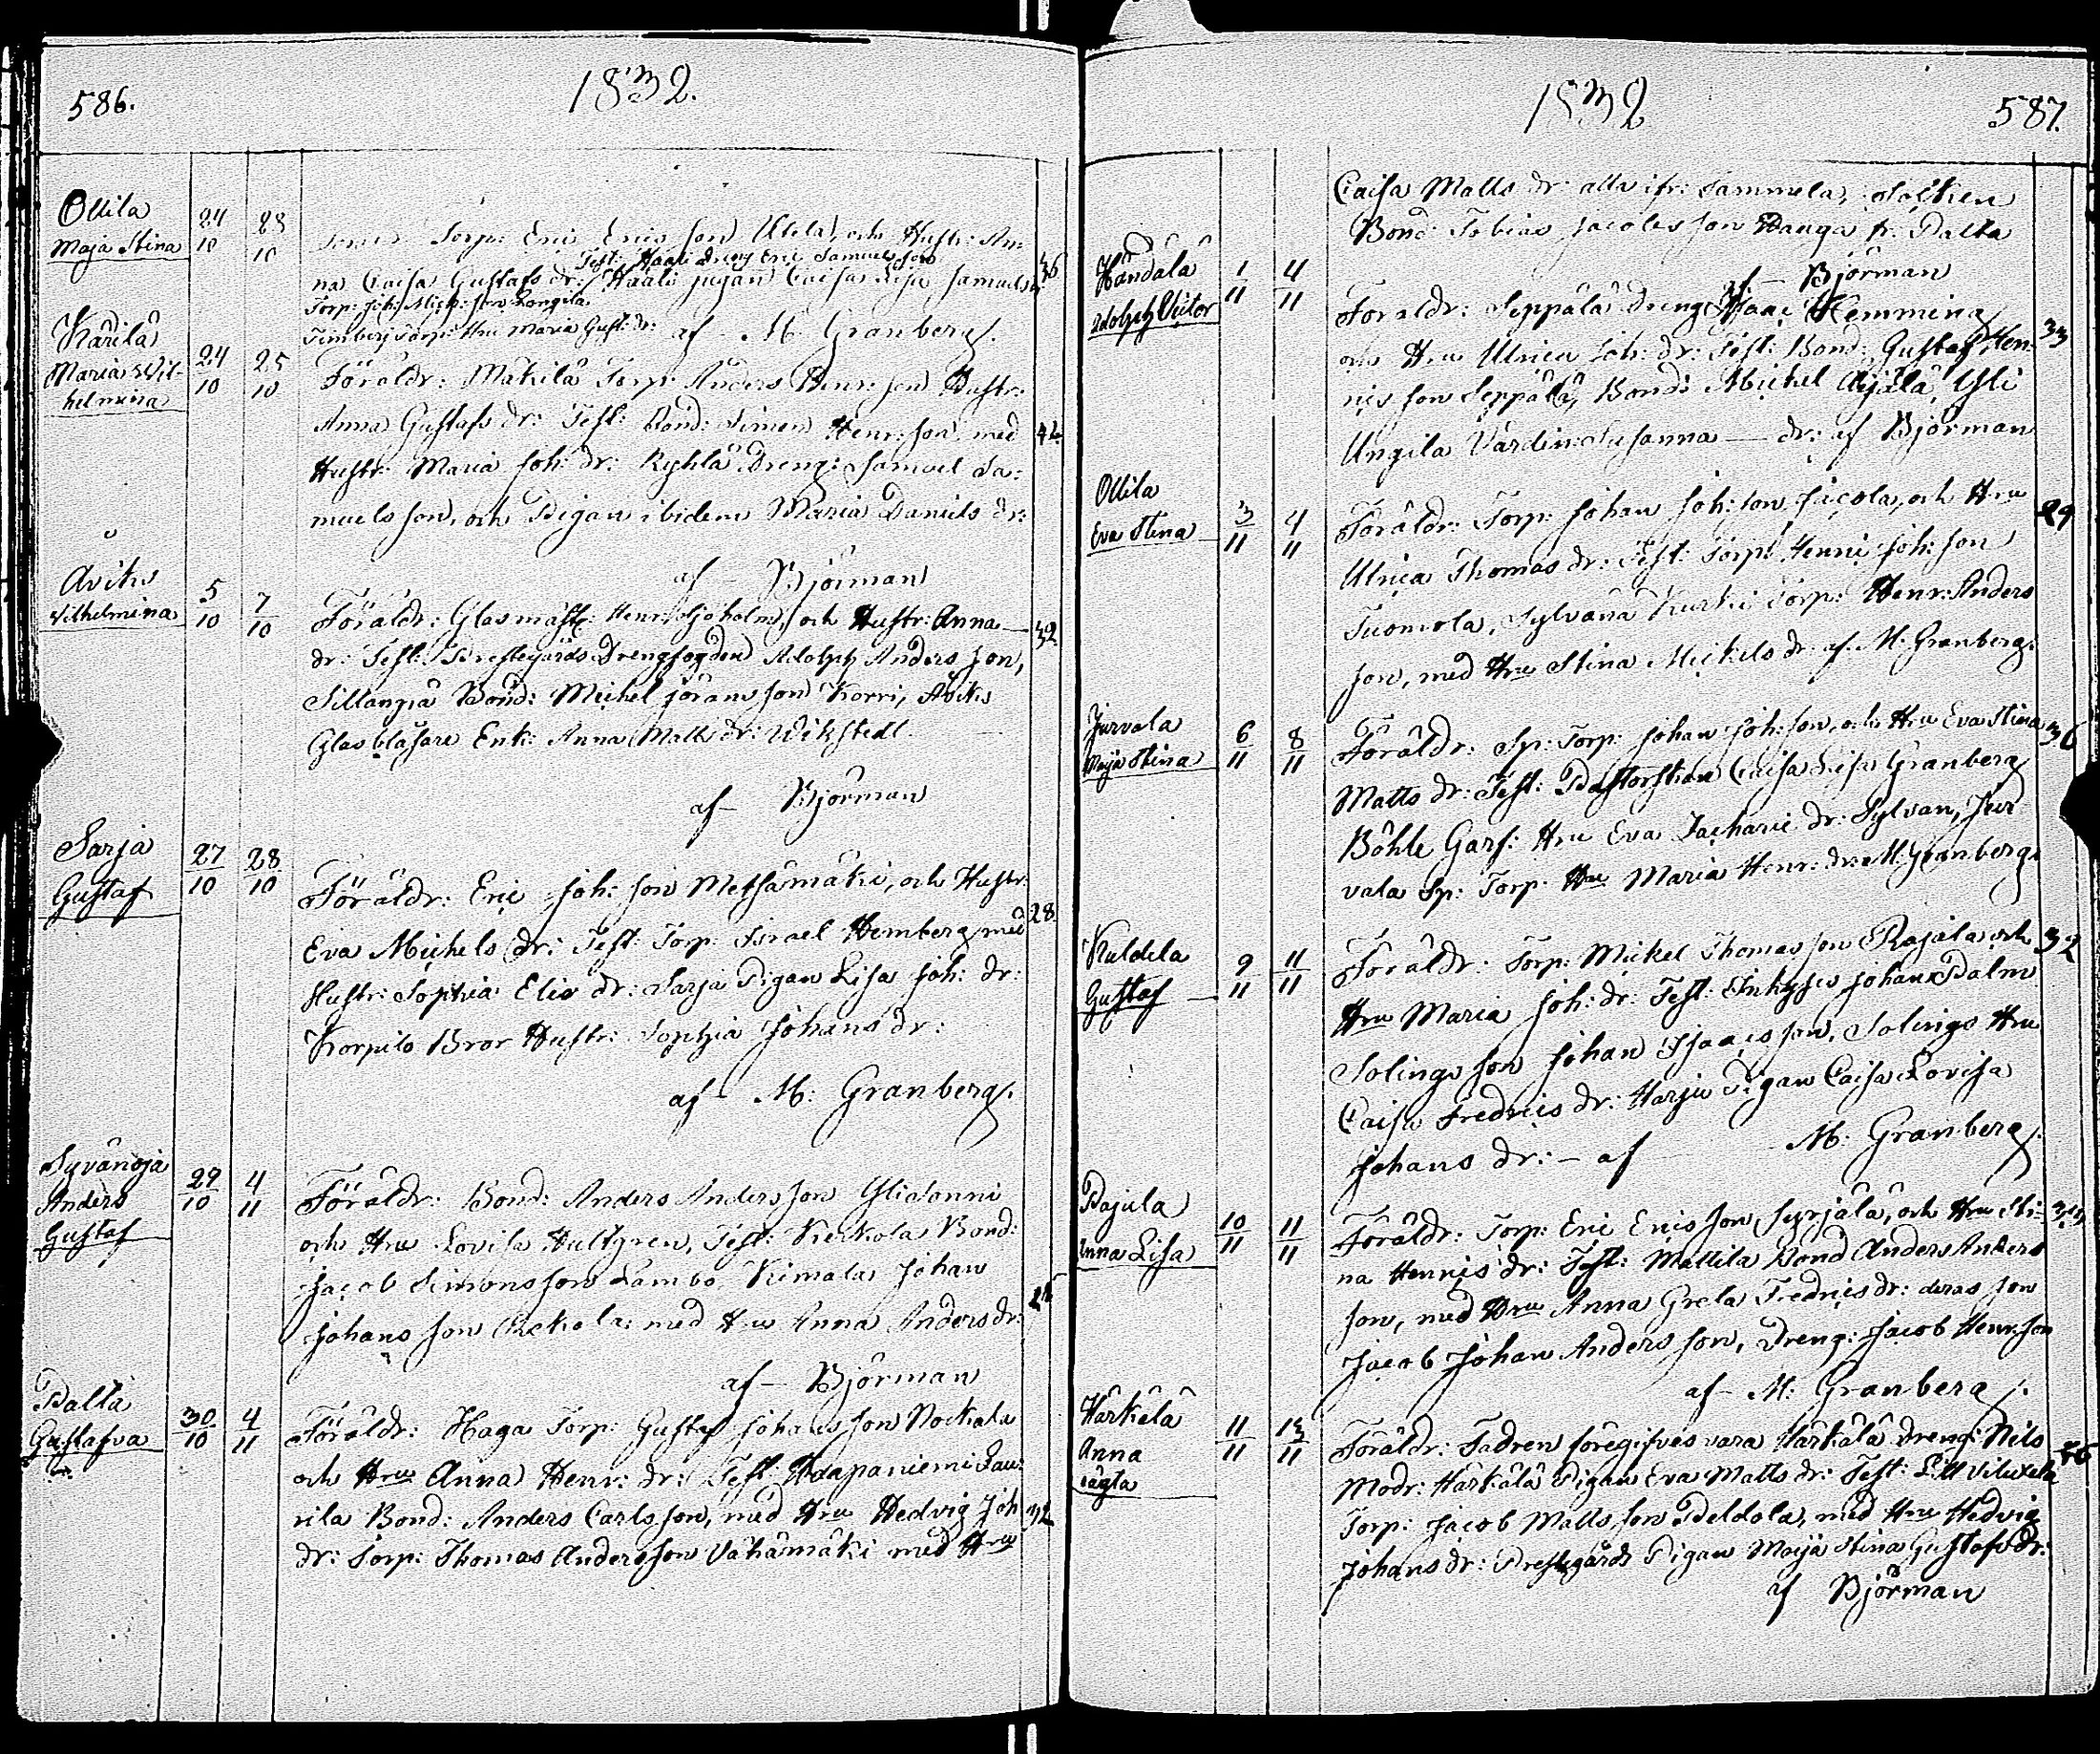 586.
1832.
Ollila
Maja Stina
24/10 28/10
Torp: Eric Erics son Utela, och Hustr: An-
Test: Haali dreng Eric Samuels son
na Caisa Gustafs dr: Haali pigan Caisa Lisa Samuels dr 36
Torp: Joh: Mich: son
Torp: Hru Maria Gust: dr: af M: Granberg.
Karilä
Maria Wil-
helmina
24/10 25/10
Föräldr: Mäkilä Torp: Anders Henr: son Hustr:
Anna Gustafs dr: Test: Bond: Simon Henr: son med 42
Hustr: Maria Joh: dr: Ryhlä Dreng: Samuel Sa-
muels son, och Pigan ibidem Maria Daniels dr:
af Björman
Åvik
Wilhelmina
5/10 7/10
Föräldr: Glasmäst: Henr: Sjöholm, och Hustr: Anna — 32
dr: Test: Prestegårds Drengfogden Adolph Anders son,
Sillanpä Bond: Michel Jörans son Korri, Åviks
Glasblåsare Enk: Anna Matts dr: Wikstedt
af Björman
Sarja
Gustaf
27/10 28/10
Föräldr: Eric Joh: son Metsämäki, och Hustr:
Eva Michels dr: Test: Torp: Israel Hemberg med 28
Hustr: Sophia Elis dr: Sarja Pigan Lisa Joh: dr:
Korpilo Bror Hustr: Sophia Johans dr:
af M: Granberg.
Syvänoja
Anders
Gustaf
29/10 4/11
Föräldr: Bond: Anders Anders son Ylidonni
och Hru Lovisa Hultgren, Test: Kerkola Bond:
Jacob Simons son Lambo, Kimala Johan
Johans son med Hru Anna Anders dr:
af — Björman
Palta
Gustafva
30/10 4/11
Föräldr: Haga Torp: Gustaf Johans son Nockala
och Hru Anna Henr: dr: Test: Haapaniemi Lau-
rila Bond: Anders Carls son, med Hru Hedvig Joh 32
dr: Torp: Thomas Anders son Vähämäki med Hru
1832
587.
Caisa Matts dr: alla ifr: Sammela,
Bond: Tobias Jacobs son Hauga fr: Palta
af Björman
Händälä
Adolph Victor
1/11 4/11
Föräldr: Seppälä Dreng Isaac Hemming
och Hru Ulrica Joh: dr: Test: Bond: Gustaf Hen- 33
rics son Seppälä, Bond: Michel Äijälä, Yli
Ungila Värdin: Susanna — dr: af Björman
Ollila
Eva Stina
3/11 4/11
Föräldr: Torp: Johan Joh: son Jacola, och Hru 29
Ulrica Thomas dr: Test: Torp: Henric Joh: son
Tuomola, Sylvänä Kurki Torp: Henr: Anders
son, med Hru Stina Mickels dr: af M: Granberg.
Jurvala
Maja Stina
6/11 8/11
Föräldr: Sp: Torp: Johan Joh: son, och Hru Eva Stina 36
Matts dr: Test: Pastorskan Caisa Lisa Granberg
Böhle Garf: Hru Eva Zacharie dr: Sylvan, Jur
vala Sp: Torp: Hru Maria Henr: dr: M: Granberg.
Kuldela
Gustaf
9/11 11/11
Föräldr: Torp: Mickel Thomas son Rajala, och 32
Hru Maria Joh: dr: Test: Johan Palm
Solings son Johan Isaacs son, Solings Hru
Caisa Fredrics dr: Harju Pigan Caisa Lovisa
Johans dr: — af M: Granberg.
Pajula
Anna Lisa
10/11 11/11
Föräldr: Torp: Eric Erics son Syrjälä, och Hru Sti-
na Henrics dr: Test: Mattila Bond Anders Anders
son, med Hru Anna Greta Fredrics dr: deras son
Jacob Johan Anders son, Dreng: Jacob Henr: son
af M: Granberg.
Härkälä
Anna
Agata
11/11 13/11
Föräldr: Fadren föregifves vara Härkälä Dreng: Nils
Modr: Härkälä Pigan Eva Matts dr: Test:
Torp: Jacob Matts son Peldola, med Hru Hedvig
Johans dr: Prestgårds Pigan Maija Stina Gustafs dr:
af Björman